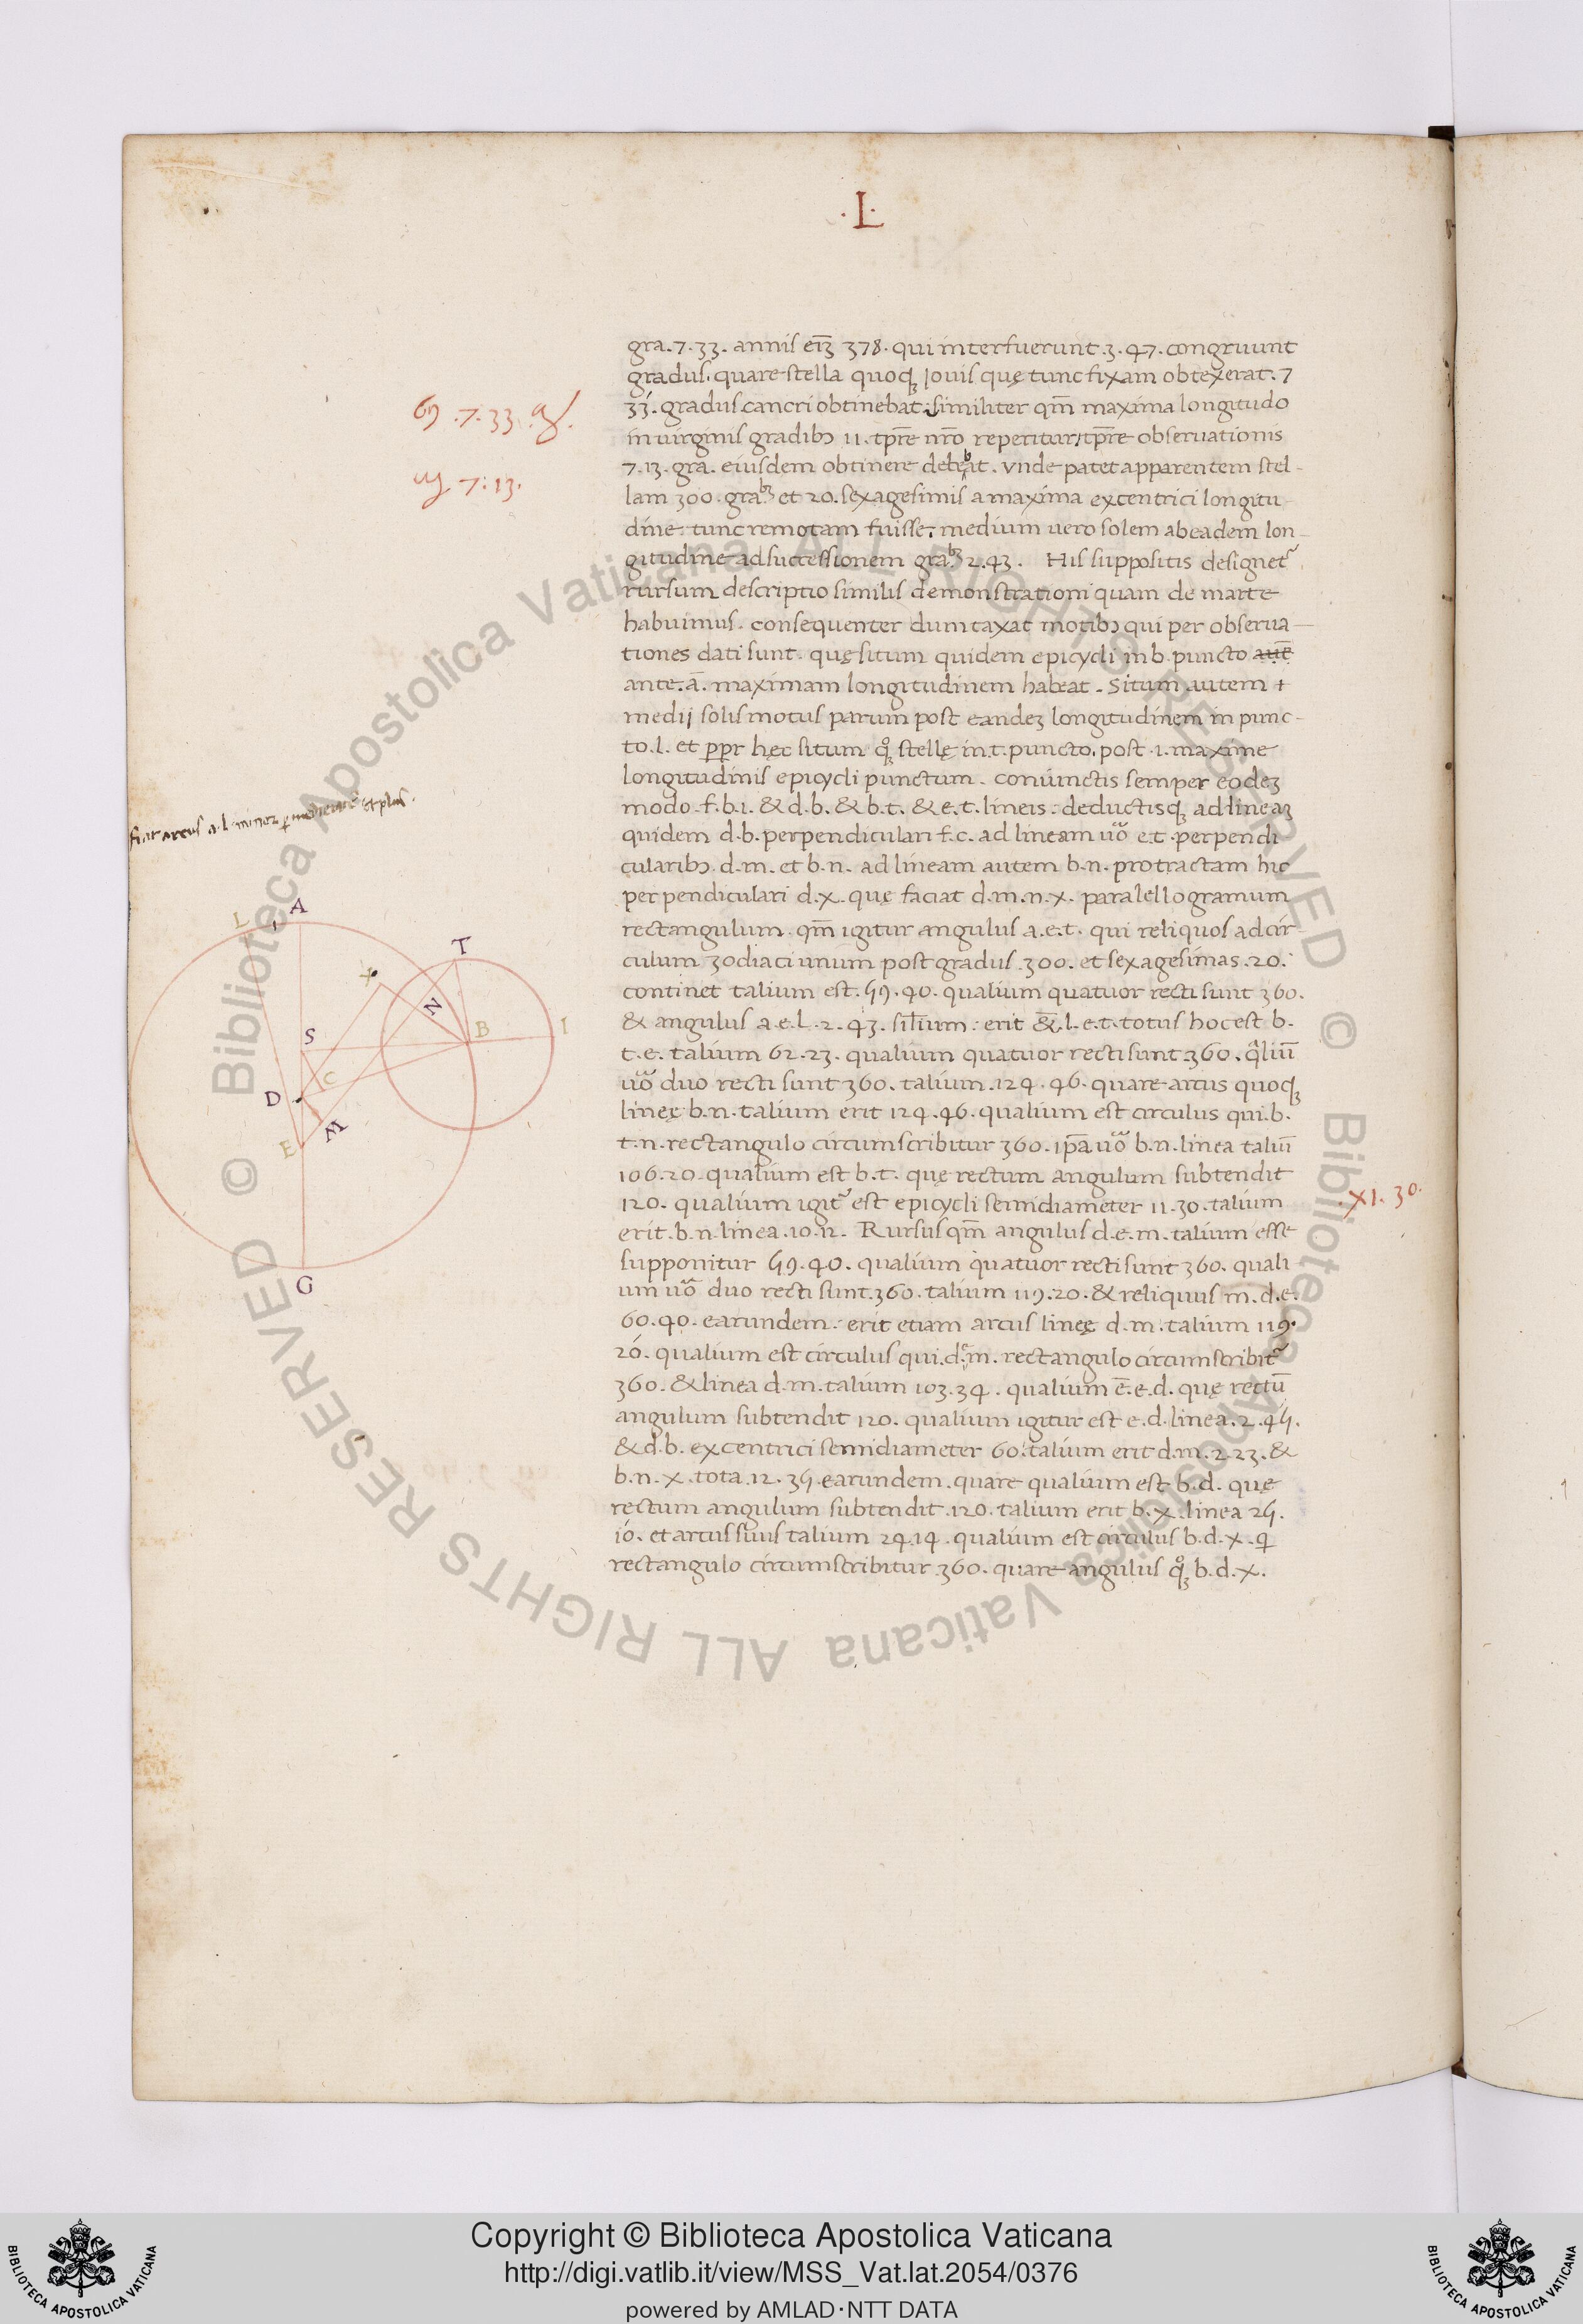 ·L·
gra. 7. 33. annis eiꝫ 378. qui interfuerunt. 3. 47. congruunt
gradus. quare stella quoqꝫ Jouis quę tunc fixam obtexerat. 7
33. gradus cancri obtinebat. similiter qm̄ maxima longitudo
in uirginis gradibꝰ 11. tp̄re nr̄o reperitur, tp̄re obseruationis
7. 13. gra. eiusdem obtinere debeat. vnde patet apparentem stel-
lam 300. grabꝫ et 20. sexagesimis a maxima excentrici longitu-
dine tunc remotam fuisse. medium uero solem ab eadem lon-
gitudine ad successionem grabꝫ 2. 43. His suppositis designet᷑
rursum descriptio similis demonstrationi quam de marte
habuimus. consequenter dumtaxat motibꝰ qui per obserua-
tiones dati sunt. quę situm quidem epicycli in b. puncto
ante. a. maximam longitudinem habeat. Situm autem
medij solis motus parum post eandeꝫ longitudinem in punc-
to. l. et pp̄r hęc situm qͦꝫ stellę in. t. puncto. post. i. maxime
longitudinis epicycli punctum. coniunctis semper eodeꝫ
modo. f. b. i. & d. b. & b. t. & e. t. lineis: deductisqꝫ ad lineaꝫ
quidem d. b. perpendiculari f. c. ad lineam uō e. t. perpendi
cularibꝰ d. m. et b. n. ad lineam autem b. n. protractam hic
perpendiculari d. x. quę faciat d. m. n. x. paralellogramum
rectangulum. qm̄ igitur angulus a. e. t. qui reliquos ad cir-
culum zodiaci unum post gradus. 300. et sexagesimas. 20.
continet talium est. 59. 40. qualium quatuor recti sunt 360.
& angulus a. e. l. 2. 43. sil̄ium: erit & l. e. t. totus hoc est b.
t. e. talium 62. 23. qualium quatuor recti sunt 360. qͣliū
uō duo recti sunt 360. talium. 124. 46. quare arcus quoqꝫ
lineę b. n. talium erit 124. 46. qualium est circulus qui. b.
t. n. rectangulo circumscribitur 360. ip̄a uō b. n. linea taliū
106. 20. qualium est b. t. quę rectum angulum subtendit
120. qualium igit᷑ est epicycli semidiameter 11. 30. talium
erit. b. n. linea. 10. 12. Rursus qm̄ angulus d. e. m. talium esse
supponitur 59. 40. qualium quatuor recti sunt 360. quali
um uō duo recti sunt. 360. talium 119. 20. & reliquus m. d. e.
60. 40. earundem: erit etiam arcus lineę d. m. talium 119.
20. qualium est circulus qui. d. e. m. rectangulo circumscribit᷑
360. & linea d. m. talium 103. 34. qualium ē. e. d. quę rectū
angulum subtendit 120. qualium igitur est e. d. linea. 2. 45.
& d. b. excentrici semidiameter 60. talium erit d. m. 2. 23. &
b. n. x. tota. 12. 35. earundem. quare qualium est b. d. que
rectum angulum subtendit. 120. talium erit b. x. linea 25.
10. et arcus suus talium 24. 14. qualium est circulus b. d. x. qi
rectangulo circumscribitur 360. quare angulus qͦꝫ b. d. x.
♋ . 7. 33.
♍ 7. 13.
fiat arcus a. l. minor
L A
T
X
N
S B I
C
D
M
E
G
. XI. 30.
© Biblioteca Apostolica Vaticana ALL RIGHTS RESERVED © Biblioteca Apostolica Vaticana ALL RIGHTS RESERVED
BIBLIOTECA APOSTOLICA VATICANA
Copyright © Biblioteca Apostolica Vaticana
http://digi.vatlib.it/view/MSS_Vat.lat.2054/0376
powered by AMLAD·NTT DATA
BIBLIOTECA APOSTOLICA VATICANA